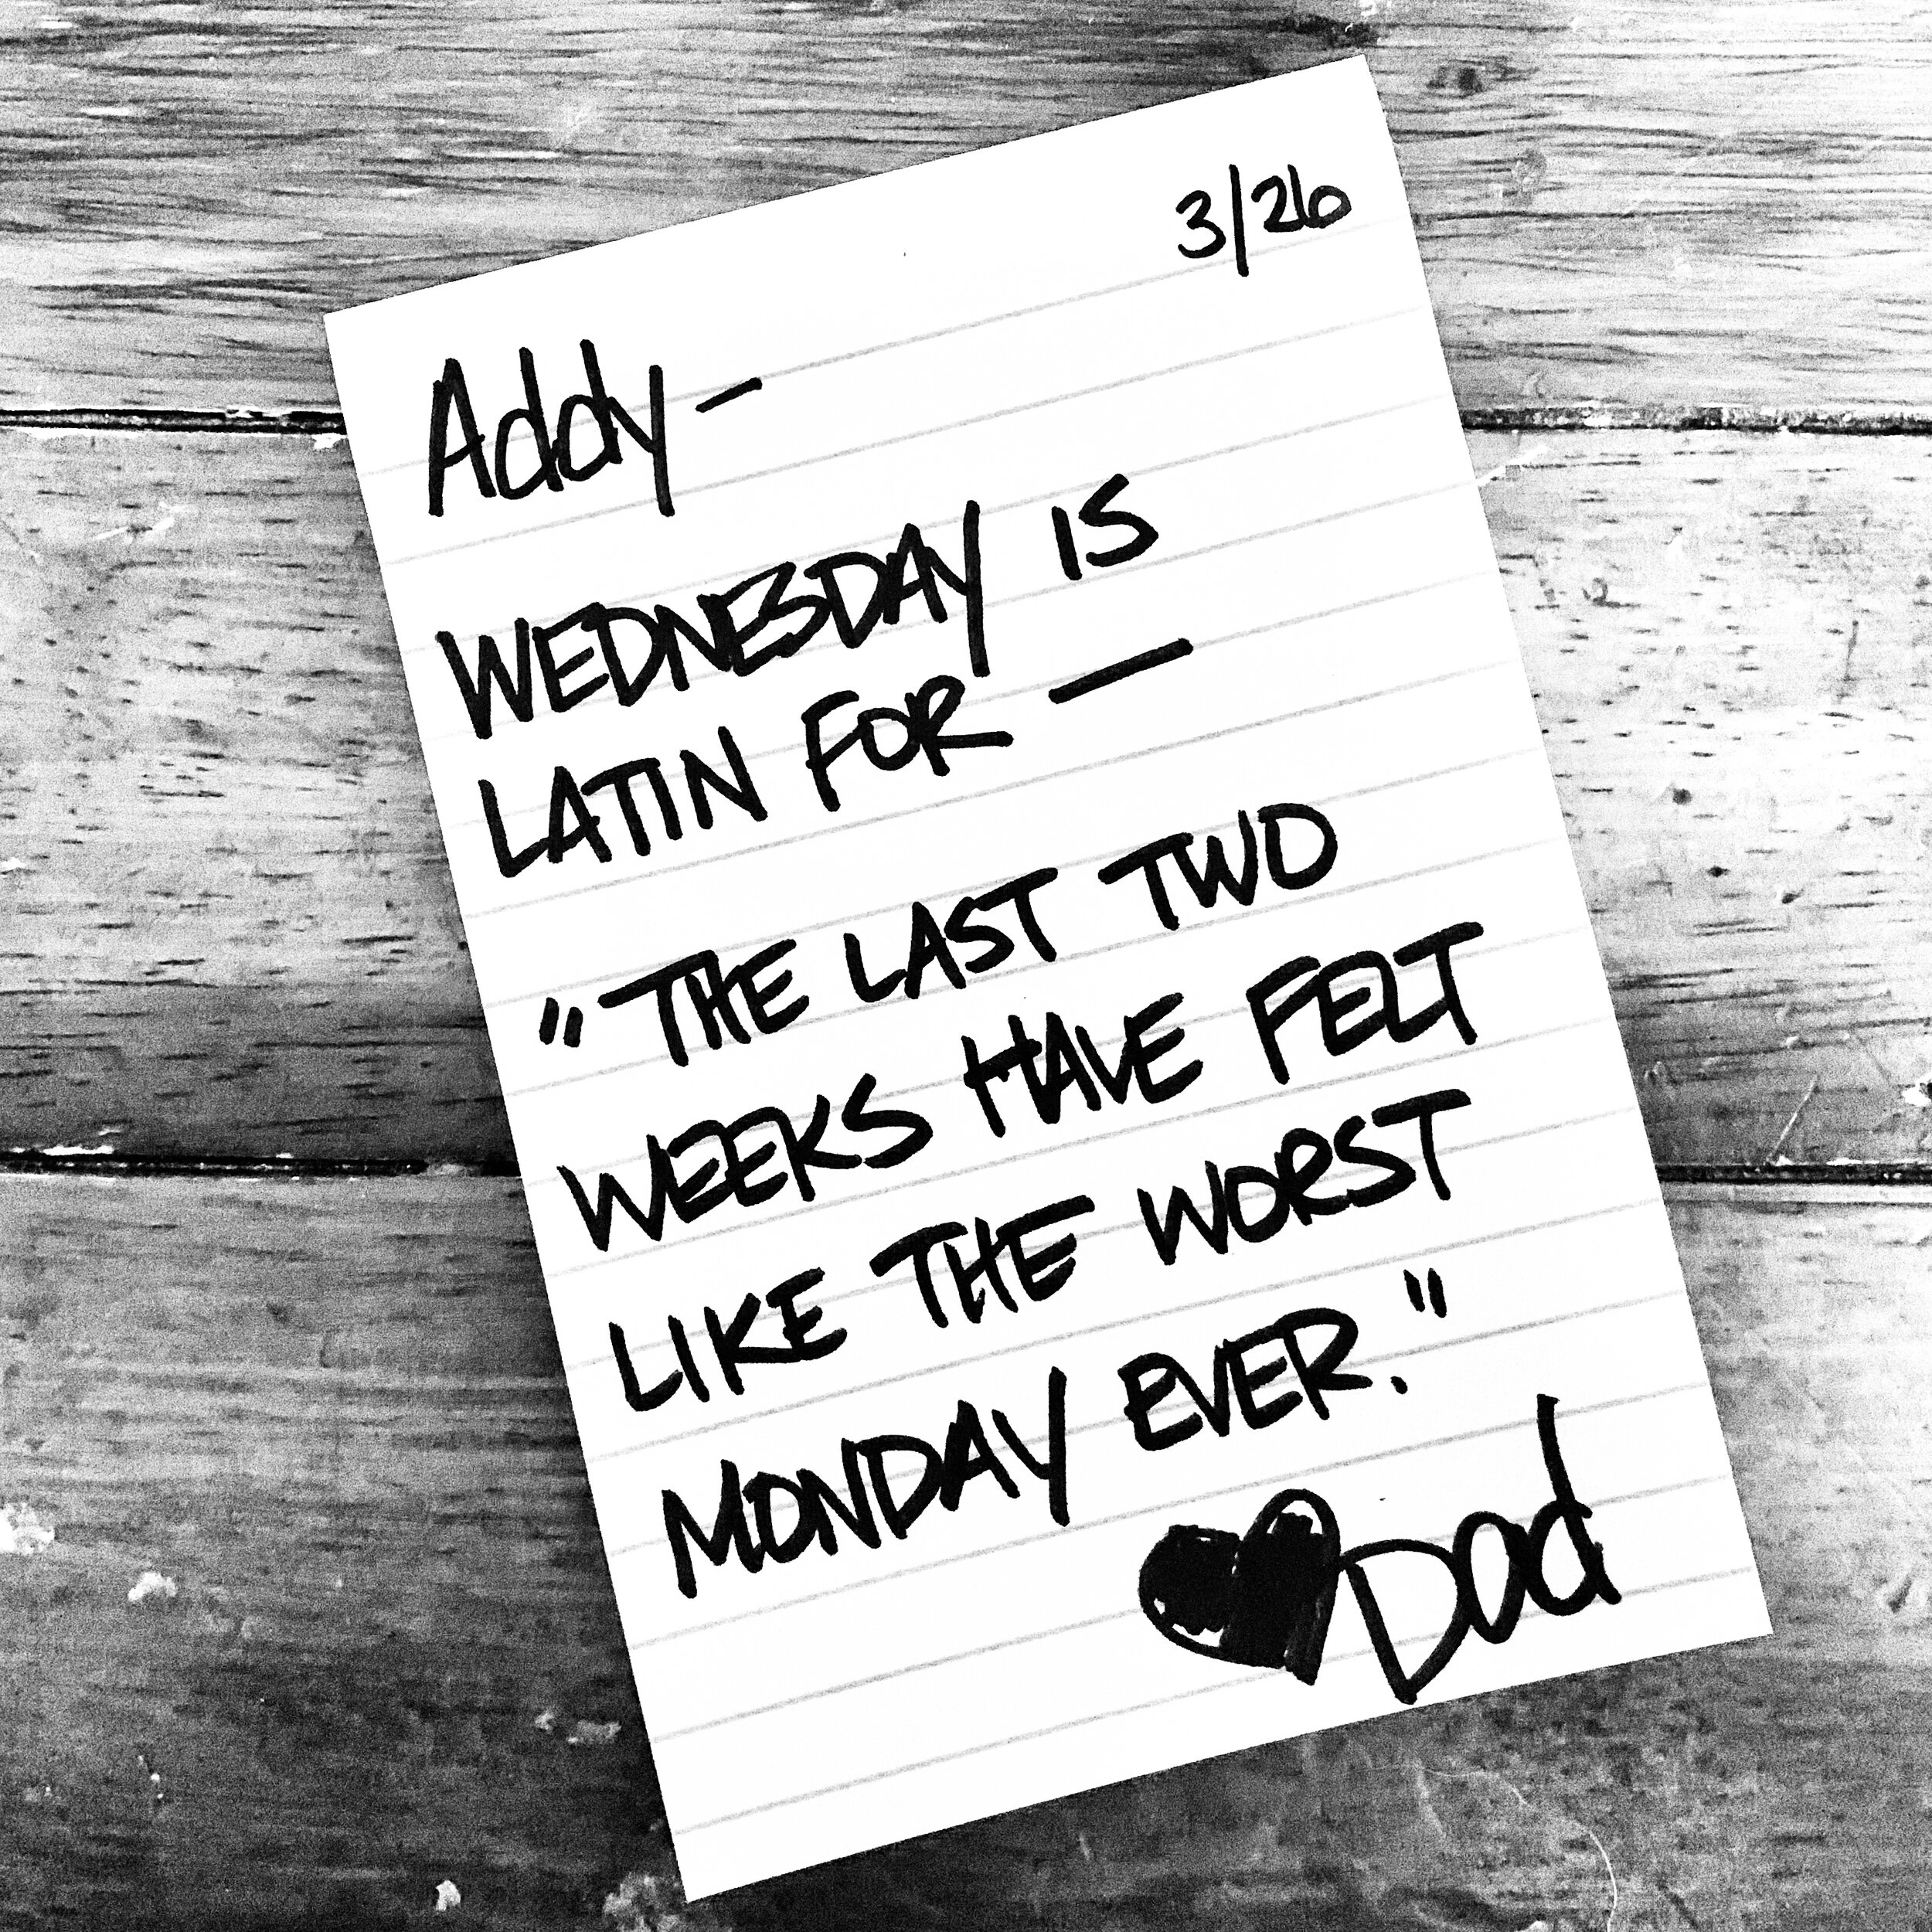 3/26
Addy-
WEDNESDAY IS
LATIN FOR —
"THE LAST TWO
WEEKS HAVE FELT
LIKE THE WORST
MONDAY EVER."
♥Dad